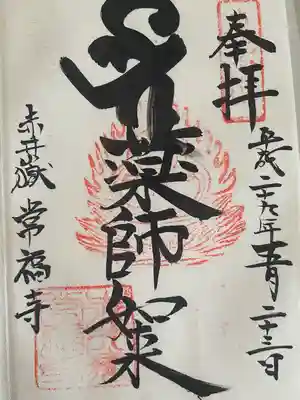 奉拝
平成二十九年五月二十三日
薬師如来
赤井嶽 常福寺